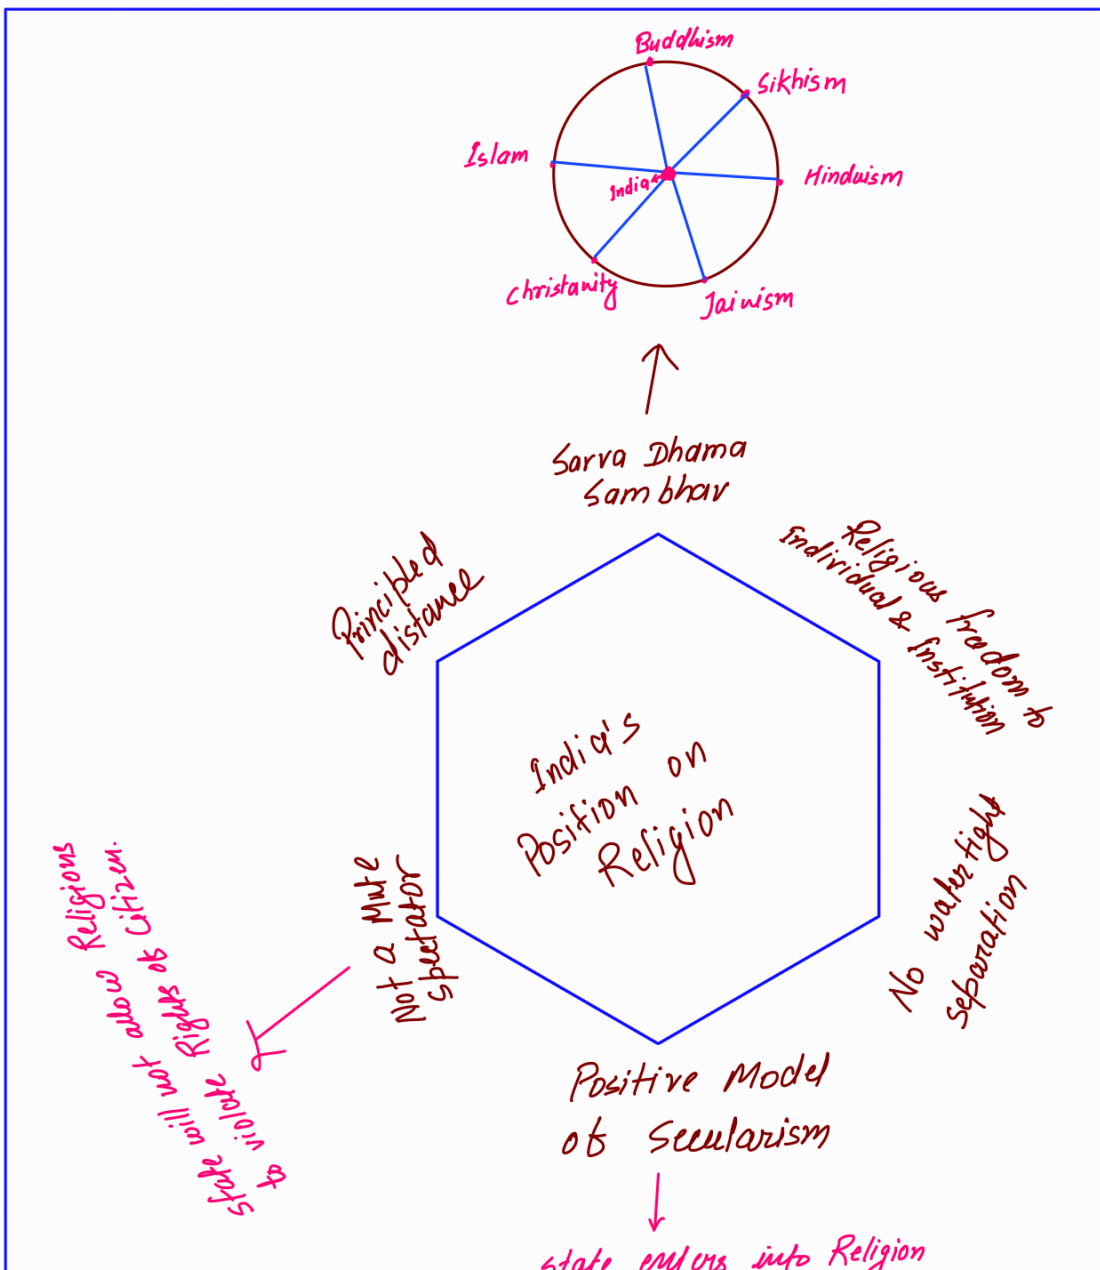 Buddhism
Sikhism
Islam
Hinduism
India
Christanity
Jainism
Sarva Dhama
Sambhav
Principled
distance
Religious freedom to
Individual & Institution
India's
Position on
Religion
No watertight
separation
Not a Mute
Spectator
State will not allow Religions
to violate Rights of Citizen.
Positive Model
of Secularism
State enters into Religion